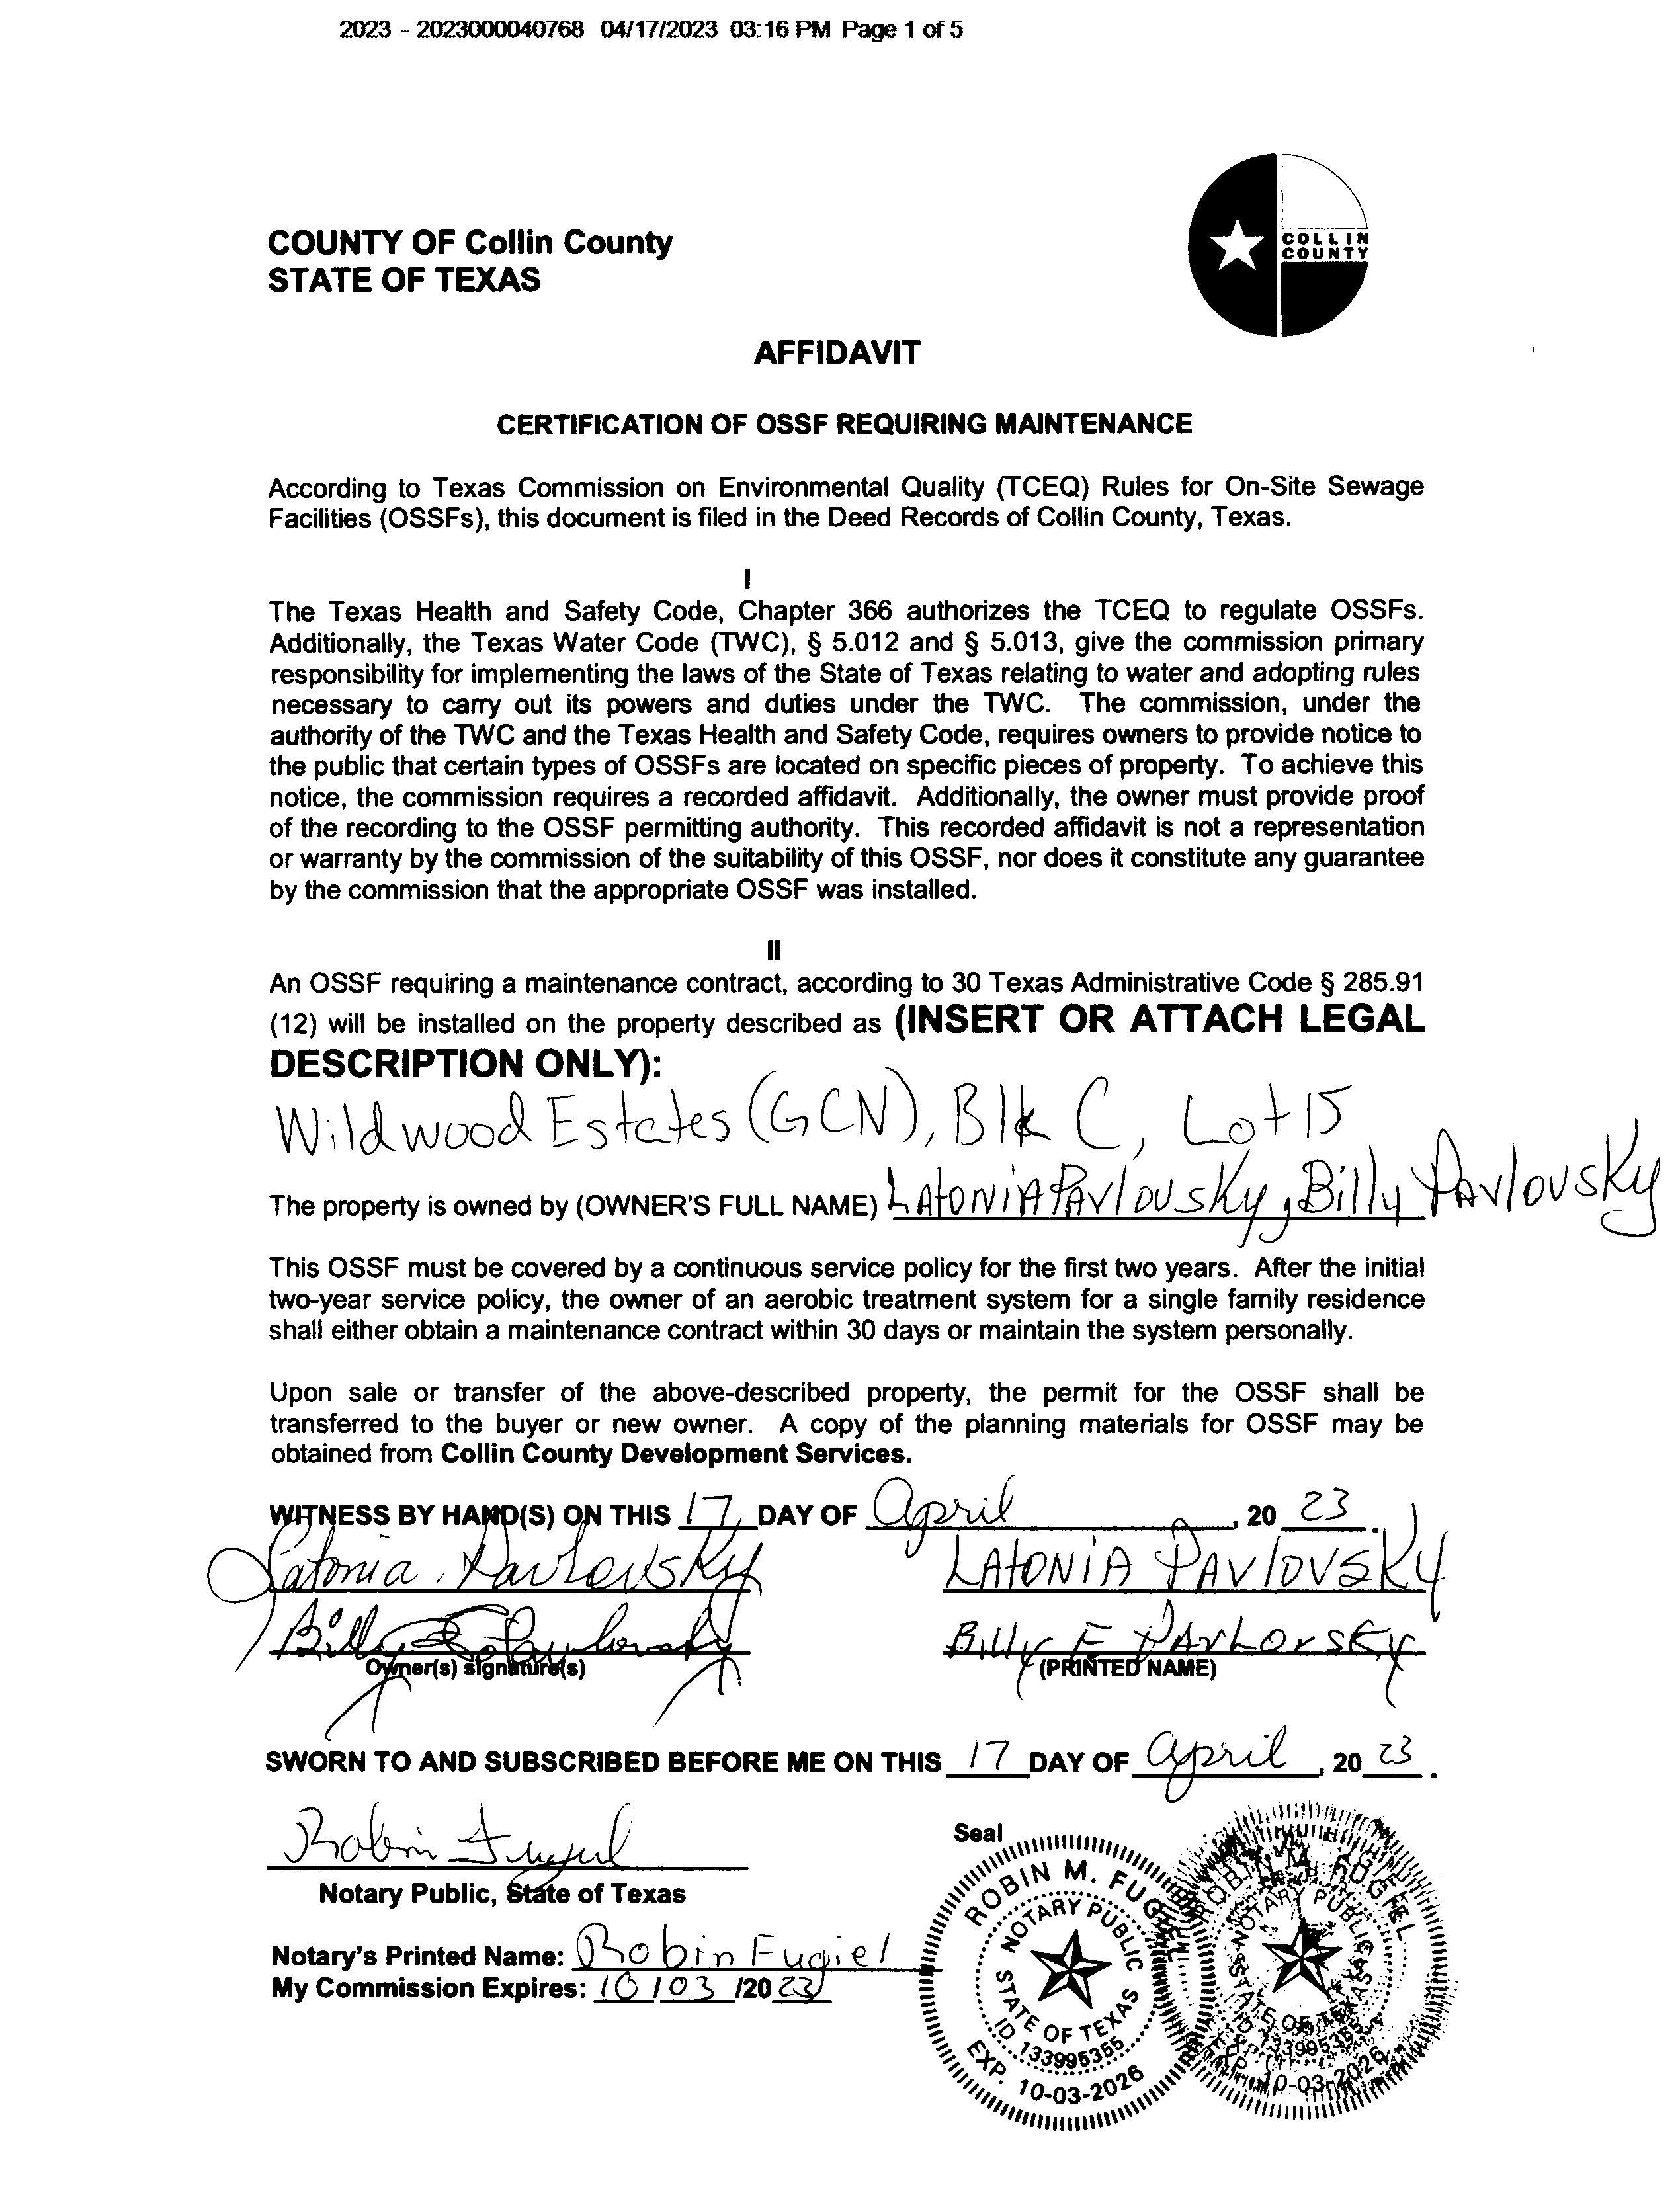 2023 - 2023000040768 04/17/2023 03:16 PM Page 1 of 5
COLLIN
COUNTY
COUNTY OF Collin County
STATE OF TEXAS
AFFIDAVIT
CERTIFICATION OF OSSF REQUIRING MAINTENANCE
According to Texas Commission on Environmental Quality (TCEQ) Rules for On-Site Sewage
Facilities (OSSFs), this document is filed in the Deed Records of Collin County, Texas.
I
The Texas Health and Safety Code, Chapter 366 authorizes the TCEQ to regulate OSSFs.
Additionally, the Texas Water Code (TWC), § 5.012 and § 5.013, give the commission primary
responsibility for implementing the laws of the State of Texas relating to water and adopting rules
necessary to carry out its powers and duties under the TWC. The commission, under the
authority of the TWC and the Texas Health and Safety Code, requires owners to provide notice to
the public that certain types of OSSFs are located on specific pieces of property. To achieve this
notice, the commission requires a recorded affidavit. Additionally, the owner must provide proof
of the recording to the OSSF permitting authority. This recorded affidavit is not a representation
or warranty by the commission of the suitability of this OSSF, nor does it constitute any guarantee
by the commission that the appropriate OSSF was installed.
II
An OSSF requiring a maintenance contract, according to 30 Texas Administrative Code § 285.91
(12) will be installed on the property described as (INSERT OR ATTACH LEGAL
DESCRIPTION ONLY):
Wildwood Estates (GCN), Blk C, Lot 15
The property is owned by (OWNER'S FULL NAME) LAtONiA PAVlovsky, Billy PAvlovsky
This OSSF must be covered by a continuous service policy for the first two years. After the initial
two-year service policy, the owner of an aerobic treatment system for a single family residence
shall either obtain a maintenance contract within 30 days or maintain the system personally.
Upon sale or transfer of the above-described property, the permit for the OSSF shall be
transferred to the buyer or new owner. A copy of the planning materials for OSSF may be
obtained from Collin County Development Services.
WITNESS BY HAND(S) ON THIS 17 DAY OF April, 20 23.
Latonia Pavlovsky LAtONiA PAVlOVSKy
Billy E Pavlovsky Billy E PAvLovsky
Owner(s) signature(s) (PRINTED NAME)
SWORN TO AND SUBSCRIBED BEFORE ME ON THIS 17 DAY OF April, 20 23.
Robin Fugiel
Notary Public, State of Texas
Notary's Printed Name: Robin Fugiel
My Commission Expires: 10/03/2023
Seal
ROBIN M. FUGIEL
NOTARY PUBLIC
STATE OF TEXAS
ID 133995355
EXP. 10-03-2026
ROBIN M. FUGIEL
NOTARY PUBLIC
STATE OF TEXAS
133995355
EXP. 10-03-2026